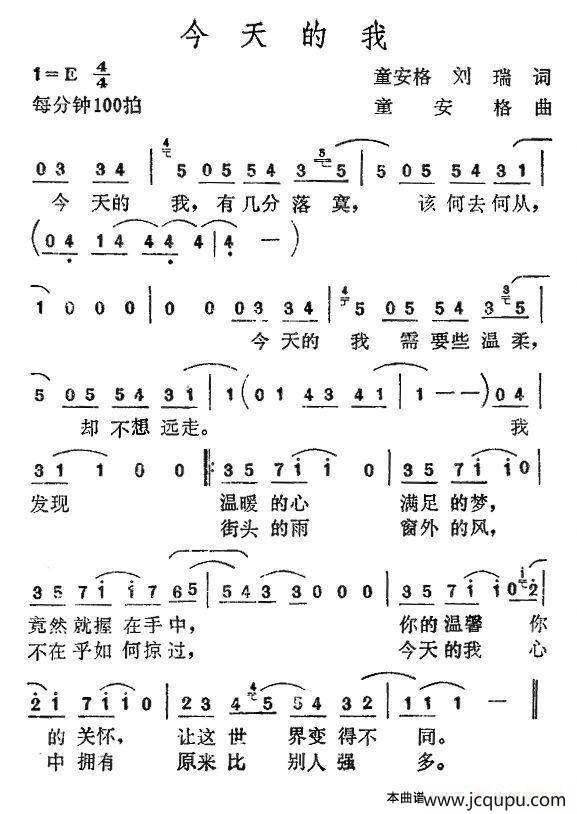 今天的我
1=E 4/4 童安格 刘瑞 词
每分钟100拍 童安格 曲
03 34 | 5 05 54 3 5 | 5 05 54 31 |
今天的 我，有几分落寞， 该何去何从，
(04 14 44 4 | 4 - )
1 0 0 0 | 0 0 03 34 | 5 05 54 3 5 |
今天的 我 需要些温柔，
5 05 54 31 | 1 (01 43 41 | 1 - - ) 04 |
却不想远走。 我
31 1 0 0 ‖: 35 71 1 0 | 35 71 10 |
发现 温暖的心 满足的梦，
街头的雨 窗外的风，
35 71 17 65 | 54 3 3 0 0 0 | 35 71 10 2 |
竟然就握在手中， 你的温馨 你
不在乎如何掠过， 今天的我 心
21 71 10 | 23 4 5 54 32 | 11 1 - ‖
的关怀， 让这世界变得不同。
中拥有 原来比别人强多。
本曲谱www.jcqupu.com